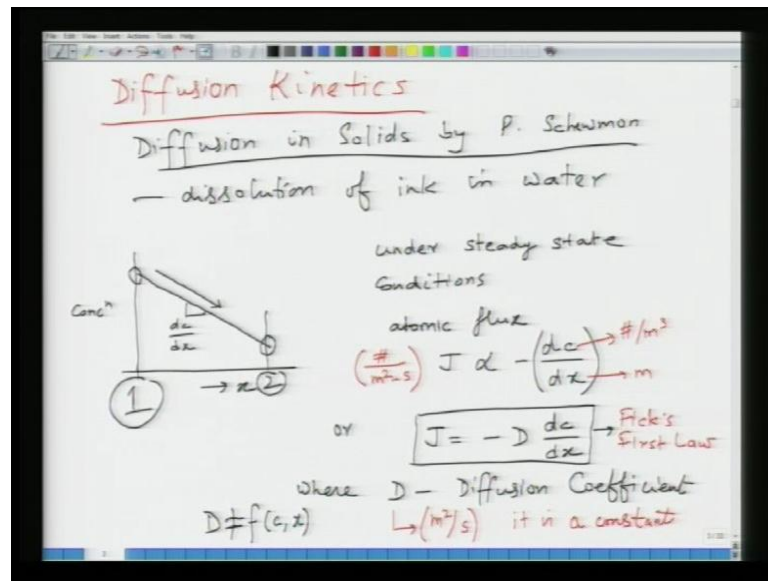 File Edit View Insert Actions Tools Help
Diffusion Kinetics
Diffusion in Solids by P. Schewmon
— dissolution of ink in water
under steady state
Conditions
Concⁿ
dc/dx
→ x
1
2
atomic flux
(#/m²-s) J α -(dc/dx) → #/m³
→ m
or
J = - D dc/dx → Fick's
First Law
where D — Diffusion Coefficient
D ≠ f(c, x) ↳ (m²/s) it is a constant